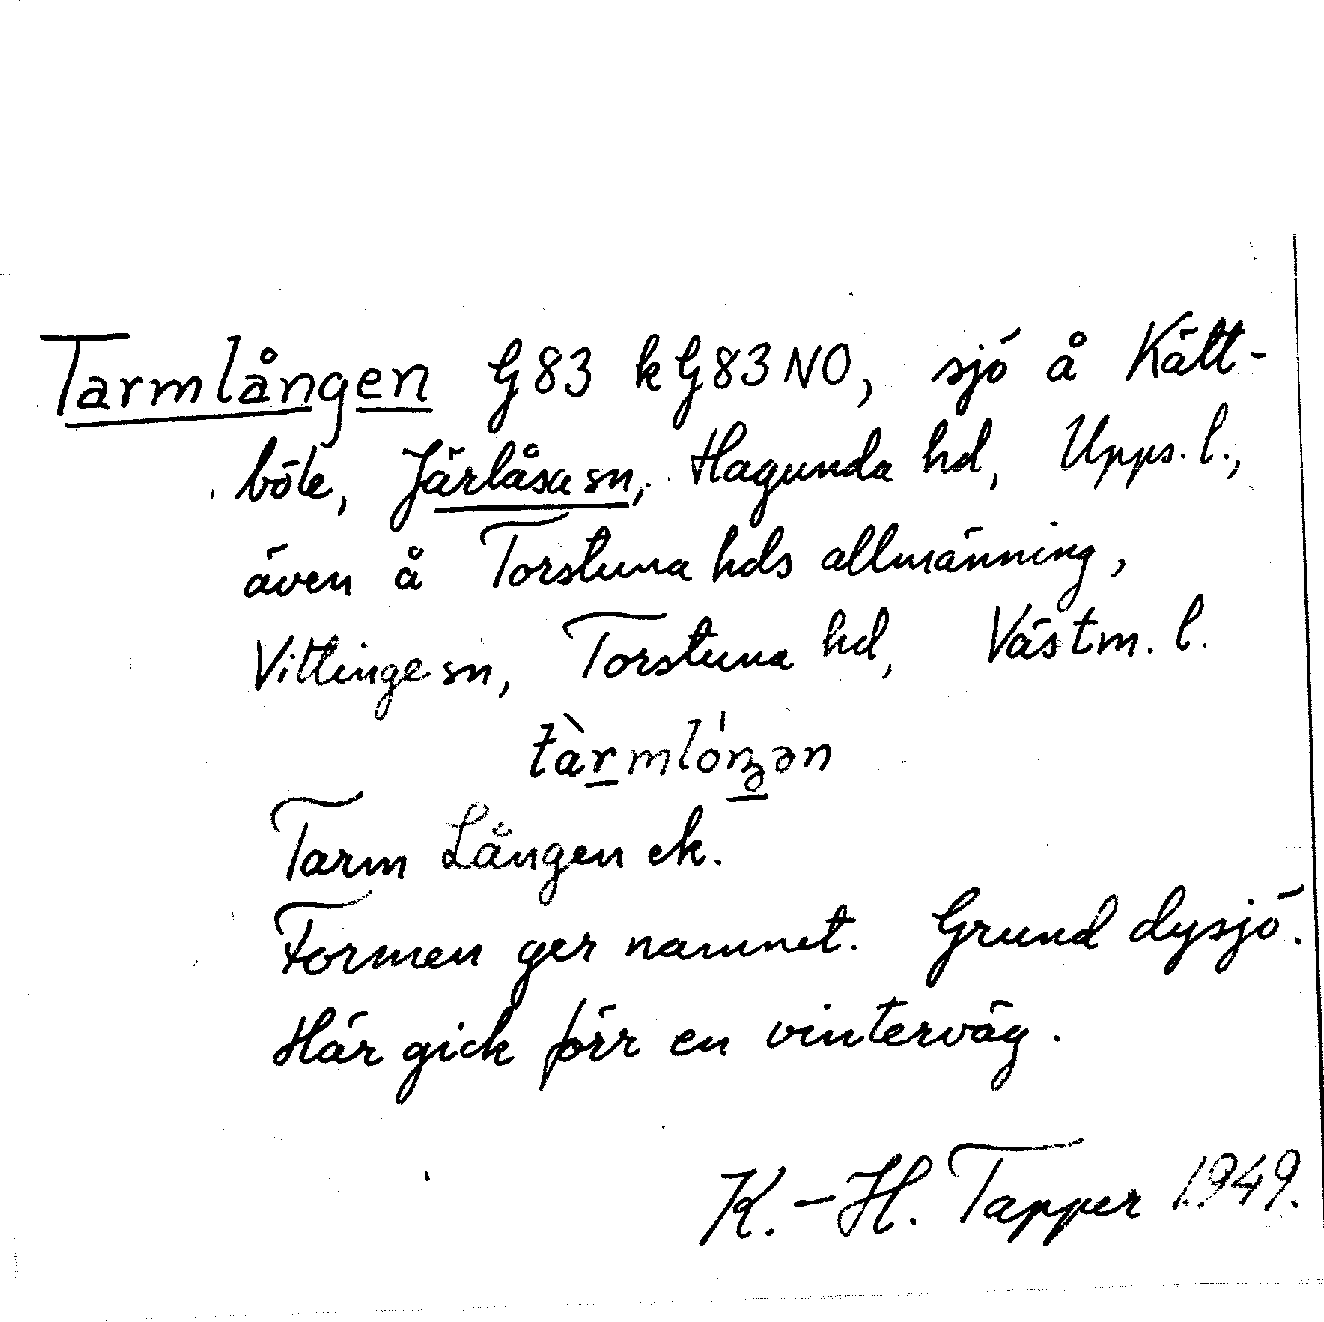 Tarmlången G83 kG83NO, sjö å Kätt-
böle, Järlåsa sn, Hagunda hd, Upps. l.,
även å Torstuna hds allmänning,
Vittinge sn, Torstuna hd, Västm. l.
Tarm Lången ek.
Formen ger namnet. Grund dysjö.
Här gick förr en vinterväg.
K.-H. Tapper 1949.